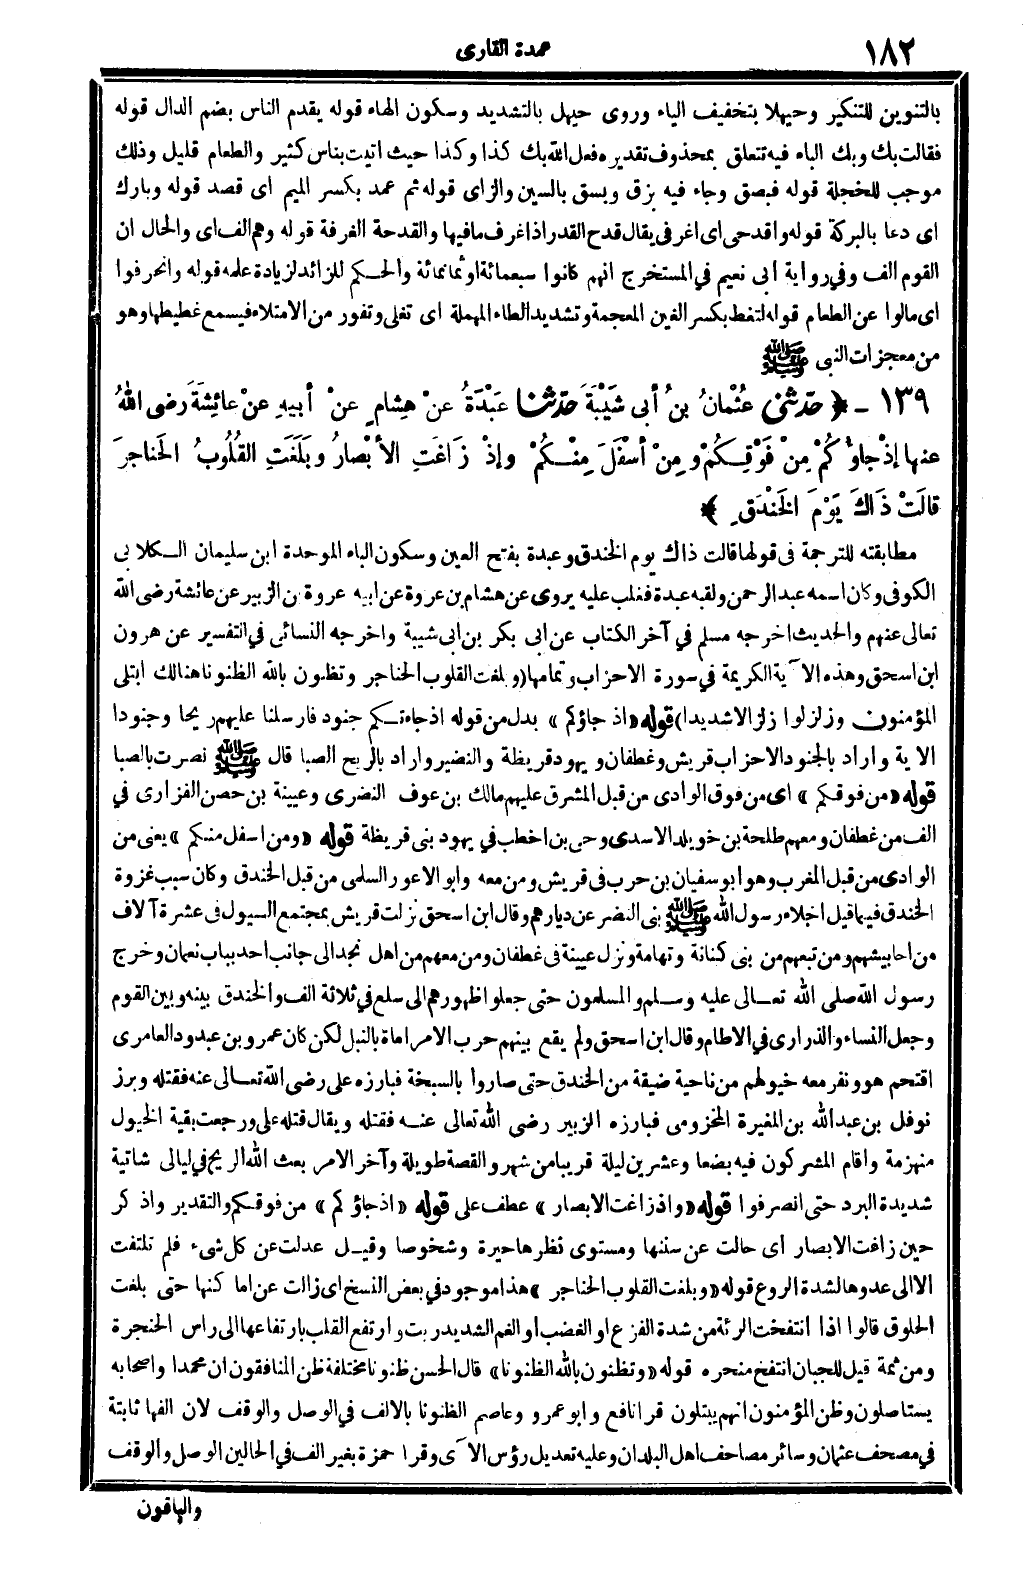 ١٨٢
عمدة القارى
بالتنوين للتنكير وحيهلا بتخفيف الياء وروى حيهل بالتشديد وسكون الهاء قوله يقدم الناس بضم الدال قوله
فقالت بك وبك الباء فيه تتعلق بمحذوف تقديره فعل الله بك كذا وكذا حيث اتيت بناس كثير والطعام قليل وذلك
موجب للخجلة قوله فبصق وجاء فيه بزق وبسق بالسين والزاى قوله ثم عمد بكسر الميم اى قصد قوله وبارك
اى دعا بالبركة قوله واقدحى اى اغرفى يقال قدح القدر اذا غرف مافيها والقدحة الغرفة قوله وهم الف اى والحال ان
القوم الف وفي رواية ابى نعيم في المستخرج انهم كانوا سبعمائة او ثمانمائة والحكم للزائد لزيادة علمه قوله وانحرفوا
اى مالوا عن الطعام قوله لتغط بكسر الغين المعجمة وتشديد الطاء المهملة اى تغلى وتفور من الامتلاء فيسمع غطيطها وهو
من معجزات النبى ﷺ
١٣٩ ـ ﴿ حَدَّثَنِى عُثْمَانُ بنُ أبى شَيْبَةَ حَدَّثَنَا عَبْدَةُ عنْ هِشامٍ عنْ أبيهِ عنْ عائِشَةَ رضى اللهُ
عنها إذْ جاؤُكُمْ مِنْ فَوْقِكُمْ ومِنْ أسْفَلَ مِنْكُمْ وإذْ زَاغَتِ الأبْصارُ وبَلَغَتِ القُلُوبُ الحَناجِرَ
قالَتْ ذَاكَ يَوْمَ الخَنْدَقِ ﴾
مطابقته للترجمة فى قولها قالت ذاك يوم الخندق وعبدة بفتح العين وسكون الباء الموحدة ابن سليمان الكلابى
الكوفى وكان اسمه عبد الرحمن ولقبه عبدة فغلب عليه يروى عن هشام بن عروة عن ابيه عروة بن الزبير عن عائشة رضى الله
تعالى عنهم والحديث اخرجه مسلم في آخر الكتاب عن ابى بكر بن ابى شيبة واخرجه النسائى في التفسير عن هرون
ابن اسحق وهذه الآية الكريمة في سورة الاحزاب وتمامها (وبلغت القلوب الحناجر وتظنون بالله الظنونا هنالك ابتلى
المؤمنون وزلزلوا زلزالا شديدا) قوله «اذ جاؤكم» بدل من قوله اذ جاءتكم جنود فارسلنا عليهم ريحا وجنودا
الاية واراد بالجنود الاحزاب قريش وغطفان ويهود قريظة والنضير واراد بالريح الصبا قال ﷺ نصرت بالصبا
قوله «من فوقكم» اى من فوق الوادى من قبل المشرق عليهم مالك بن عوف النضرى وعيينة بن حصن الفزارى في
الف من غطفان ومعهم طلحة بن خويلد الاسدى وحى بن اخطب في يهود بنى قريظة قوله «ومن اسفل منكم» يعنى من
الوادى من قبل المغرب وهو ابو سفيان بن حرب فى قريش ومن معه وابو الاعور السلمى من قبل الخندق وكان سبب غزوة
الخندق فيما قيل اجلاء رسول الله ﷺ بنى النضر عن ديارهم وقال ابن اسحق نزلت قريش بمجتمع السيول فى عشرة آلاف
من احابيشهم ومن تبعهم من بنى كنانة وتهامة ونزل عيينة فى غطفان ومن معهم من اهل نجد الى جانب احد بباب نعمان وخرج
رسول الله صلى الله تعالى عليه وسلم والمسلمون حتى جعلوا ظهورهم الى سلع في ثلاثة الف والخندق بينه وبين القوم
وجعل النساء والذرارى في الاطام وقال ابن اسحق ولم يقع بينهم حرب الامراماة بالنبل لكن كان عمرو بن عبدود العامرى
اقتحم هو ونفر معه خيولهم من ناحية ضيقة من الخندق حتى صاروا بالسبخة فبارزه على رضى الله تعالى عنه فقتله وبرز
نوفل بن عبد الله بن المغيرة المخزومى فبارزه الزبير رضى الله تعالى عنه فقتله ويقال قتله على ورجعت بقية الخيول
منهزمة واقام المشركون فيه بضعا وعشرين ليلة قريبا من شهر والقصة طويلة وآخر الامر بعث الله الريح في ليالى شاتية
شديدة البرد حتى انصرفوا قوله «واذ زاغت الابصار» عطف على قوله «اذ جاؤكم» من فوقكم والتقدير واذكر
حين زاغت الابصار اى حالت عن سننها ومستوى نظرها حيرة وشخوصا وقيل عدلت عن كل شىء فلم تلتفت
الا الى عدوها لشدة الروع قوله «وبلغت القلوب الحناجر» هذا موجود في بعض النسخ اى زالت عن اماكنها حتى بلغت
الحلوق قالوا اذا انتفخت الرئة من شدة الفزع او الغضب او الغم الشديد ربت وارتفع القلب بارتفاعها الى راس الحنجرة
ومن ثمة قيل للجبان انتفخ منحره قوله «وتظنون بالله الظنونا» قال الحسن ظنونا مختلفة ظن المنافقون ان محمدا واصحابه
يستاصلون وظن المؤمنون انهم يبتلون قرا نافع وابو عمرو وعاصم الظنونا بالالف في الوصل والوقف لان الفها ثابتة
في مصحف عثمان وسائر مصاحف اهل البلدان وعليه تعديل رؤس الآى وقرا حمزة بغير الف في الحالين الوصل والوقف
والباقون